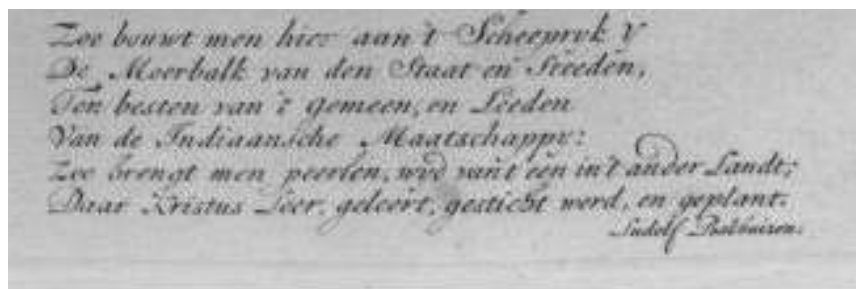 Zoo bouwt men hier aan't Scheepryk Y
De Moerbalk van den Staat en Steeden,
Ten besten van 't gemeen, en Leeden
Van de Indiaansche Maatschappy:
Zoo brengt men peerlen, wyd van't een in't ander Landt;
Daar Kristus Leer, geleert, gesticht werd, en geplant.
Ludolf Bakhuizen.